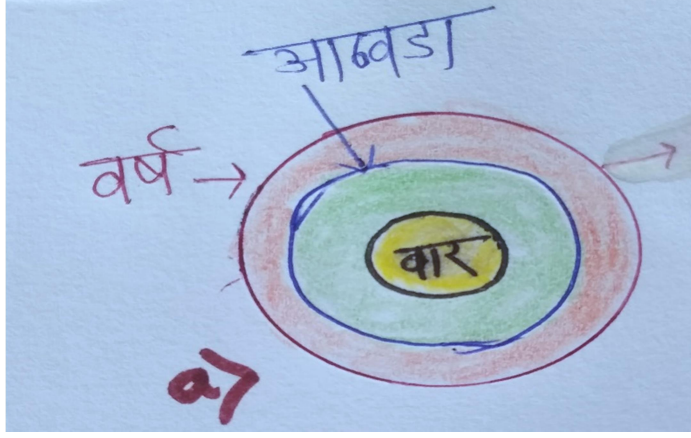 आठवडा
वर्ष
वार
a)